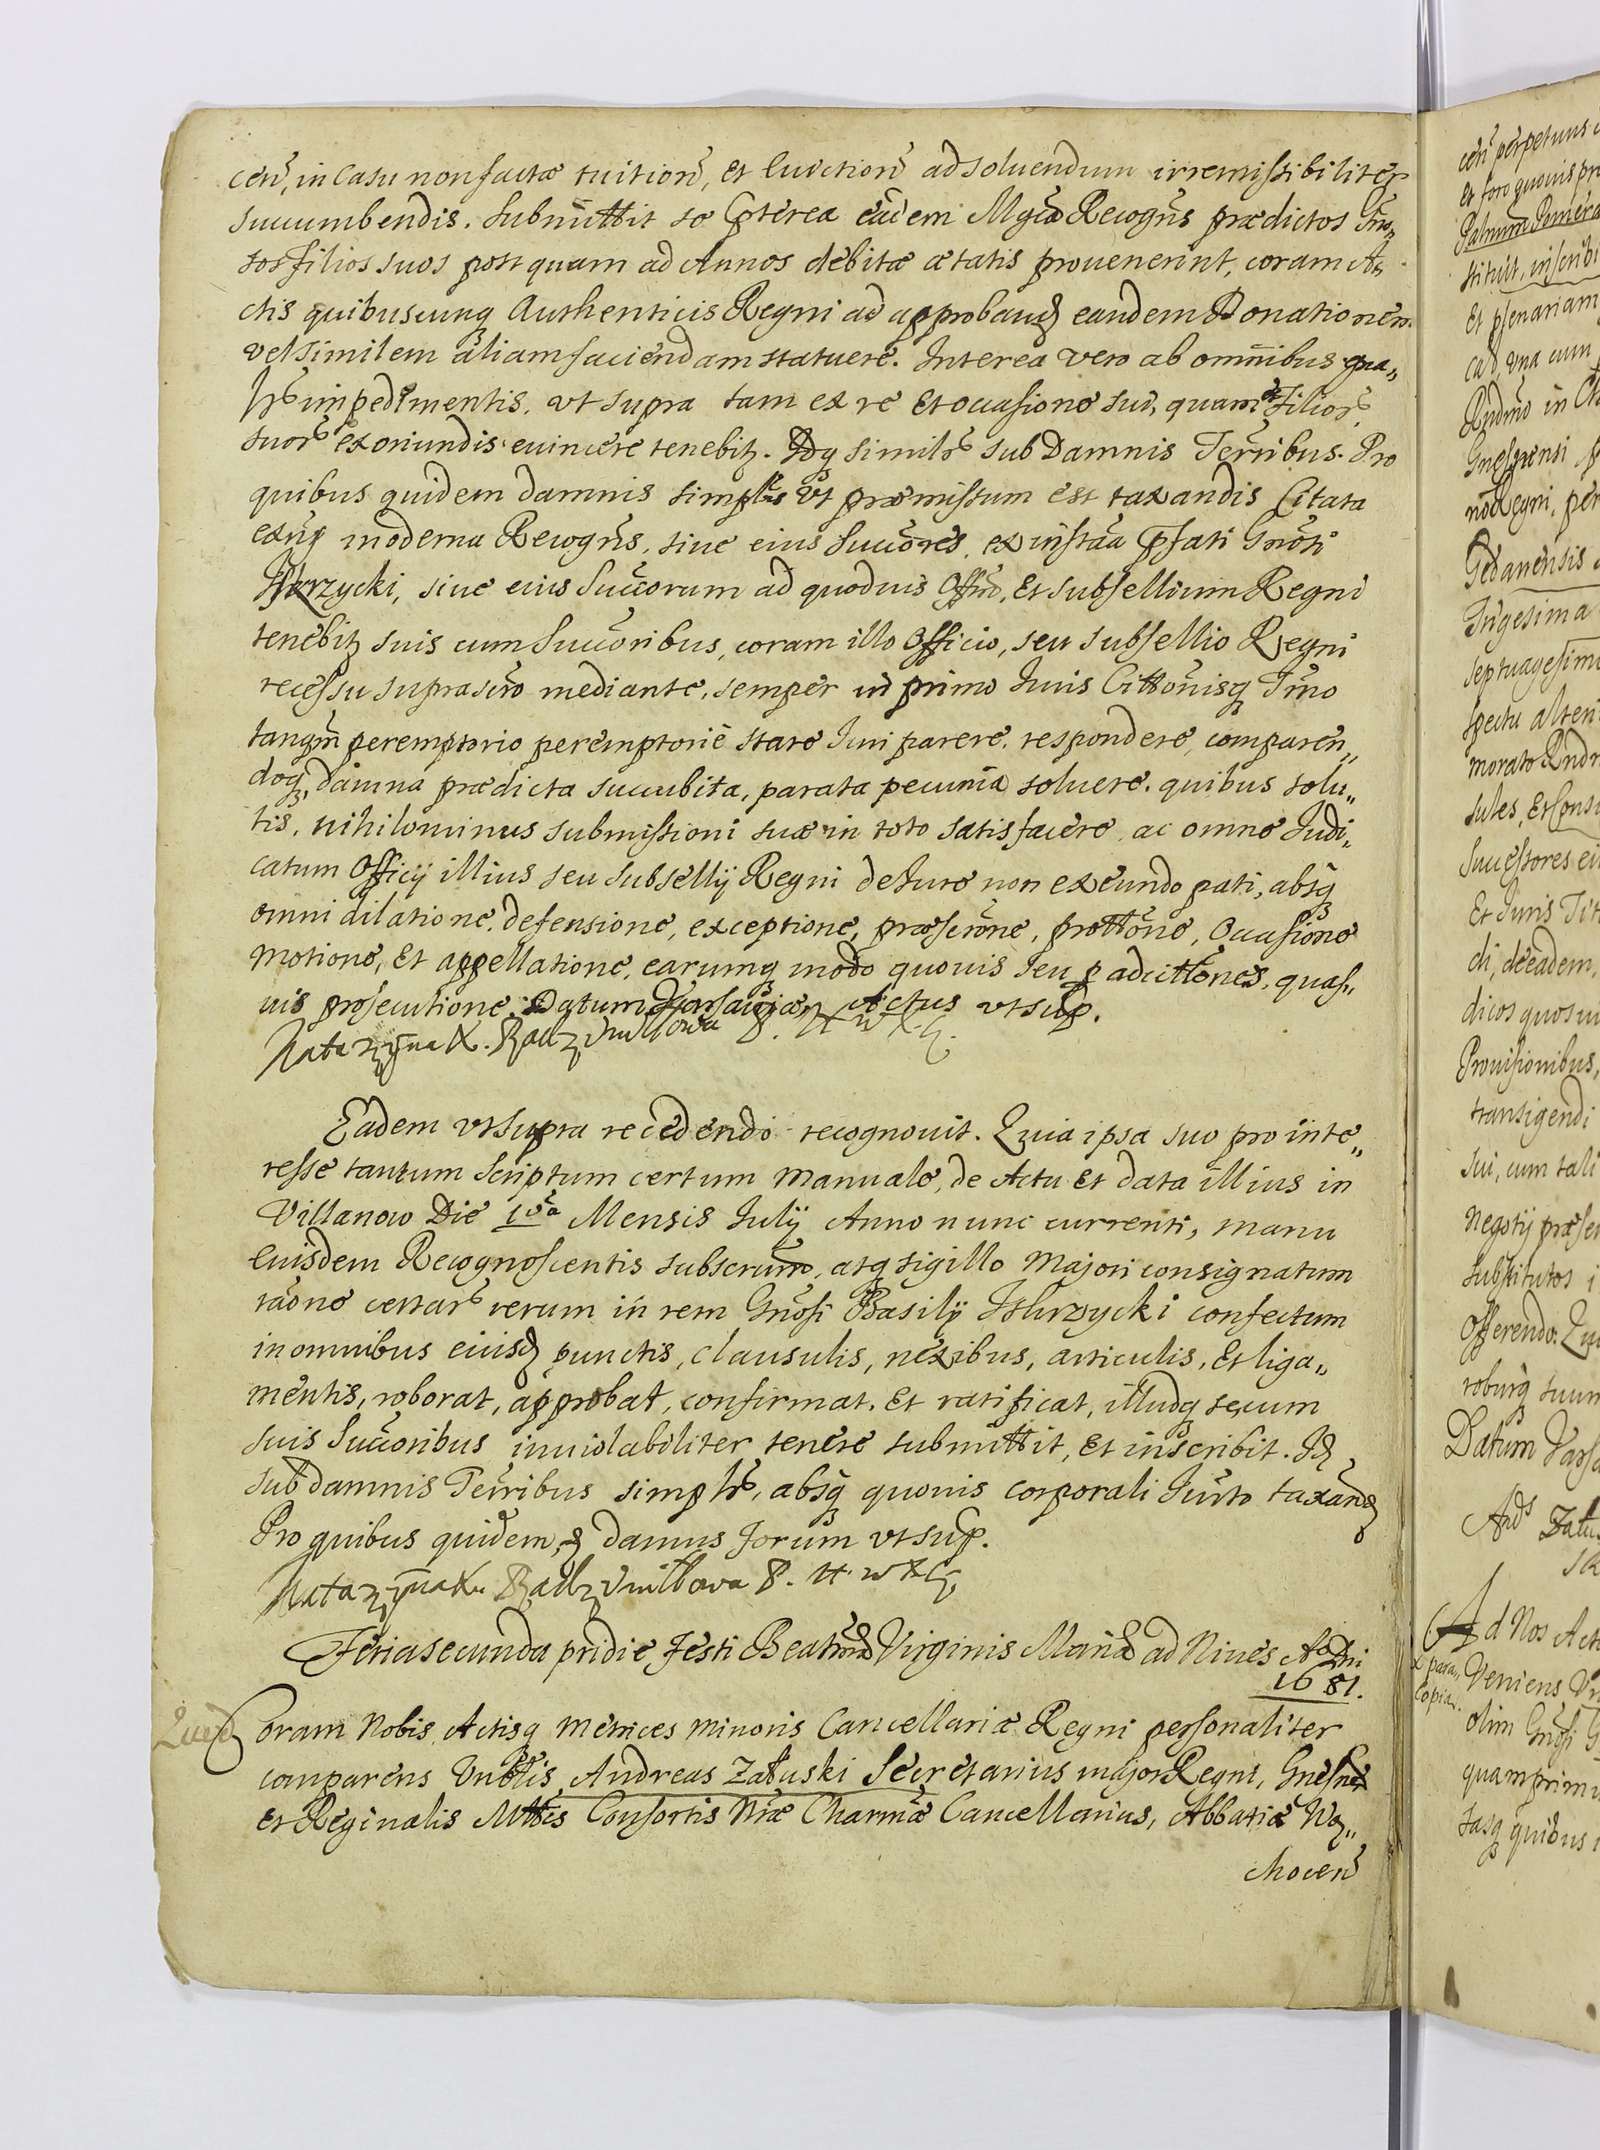 cen, in Casu non factæ tuition, et Euiction ad soluendum irremissibiliter
succumbendis. Submittit se Ppterea eadem Mgca Recogns prædictos Gno„
sos filios suos postquam ad Annos debitæ ætatis prouenerint, coram A„
ctis quibuscunq Authenticis Regni ad approband eandem Donationem
vel similem aliam faciendam statuere. Interea vero ab omnibus
impedimentis, vt supra tam ex re Et occasione sui, quam et Filior
suor exoriundis euincere tenebit. Idq similr sub Damnis Terribus. Pro
quibus quidem damnis simplr vt præmissum est taxandis Citata
exnq moderna Recogns, siue eius Succores, ex instãa Pfati Gnosi
siue eius Succorum ad quoduis Offm, Et subsellium Regni
tenebit suis cum Succoribus, coram illo Officio, seu subsellio Regni
recessu suprascro mediante, semper in primo Iuris Cittonisq Tmo
tanqm peremptorio peremptorie stare Iuri parere, respondere, comparen„
doq, damna prædicta succubita, parata pecunia soluere. quibus solu„
tis, nihilominus submissioni suæ in toto satisfacere, ac omne Iudi„
catum Officij illius seu Subsellij Regni de Iure non exeundo pati, absq
omni dilatione, defensione, exceptione, præscrone, prottone, Occasione
motione, Et appellatione, earumq modo quouis seu p adcittones, quas„
uis prosecutione. Datum Varsauiæ, Actus vt sup.
Katarzyna X. Radziwiłłowa P. K W X L.
Eadem vt supra recedendo recognouit. Quia ipsa suo pro inte„
resse tantum Scriptum certum manuale, de Actu Et data illius in
Villanow Die Mensis Iulij Anno nunc currenti, manu
Eiusdem Recognoscentis subscrum, atq sigillo Majori consignatum
raone certar rerum in rem Gnosi Basilij confectum
in omnibus eiusd punctis, clausulis, nexibus, articulis, Et liga„
mentis, roborat, approbat, confirmat. Et ratificat, illudq secum
suis Succoribus inuiolabiliter tenere submittit, Et inscribit. Id
sub damnis Terribus simplr, absq quouis corporali Iurto taxand
Pro quibus quidem, damnis Forum vt sup.
Katarzyna X. Radziwiłłowa P. K W X L
Feria secunda pridie Festi Beatmæ Virginis Mariæ ad Niues A Dni
1681.
Coram Nobis Actisq metrices minoris Cancellariæ Regni personaliter
comparens Vrblis Andreas Załuski Secretarius major Regni, Gnesnen
et Reginalis Mttis Consortis Nræ Charmæ Cancellarius, Abbatiæ Wą„
chocen
cen perpetuus
Et foro quouis
Palnum Pomera
stituit, inscribi
Et plenariam
cad, vna cum
Rndmo in
Gnesnensi
Regni, per
Gedanensis
Trigesima
septuagesima
spectu
morato
sules, Et Consu
Successores
Et Iuris Tit
di, de eadem,
dicos quosui
Prouisionibus,
transigendi
sui, cum tali
Negotij præse
substitutos
Offerendo.
roburq suum
Datum Varsa
Ands Zału
Ad Nos Acta
x para„
copia.
Veniens
olim Gnosi
quamprimu
tasq quibus